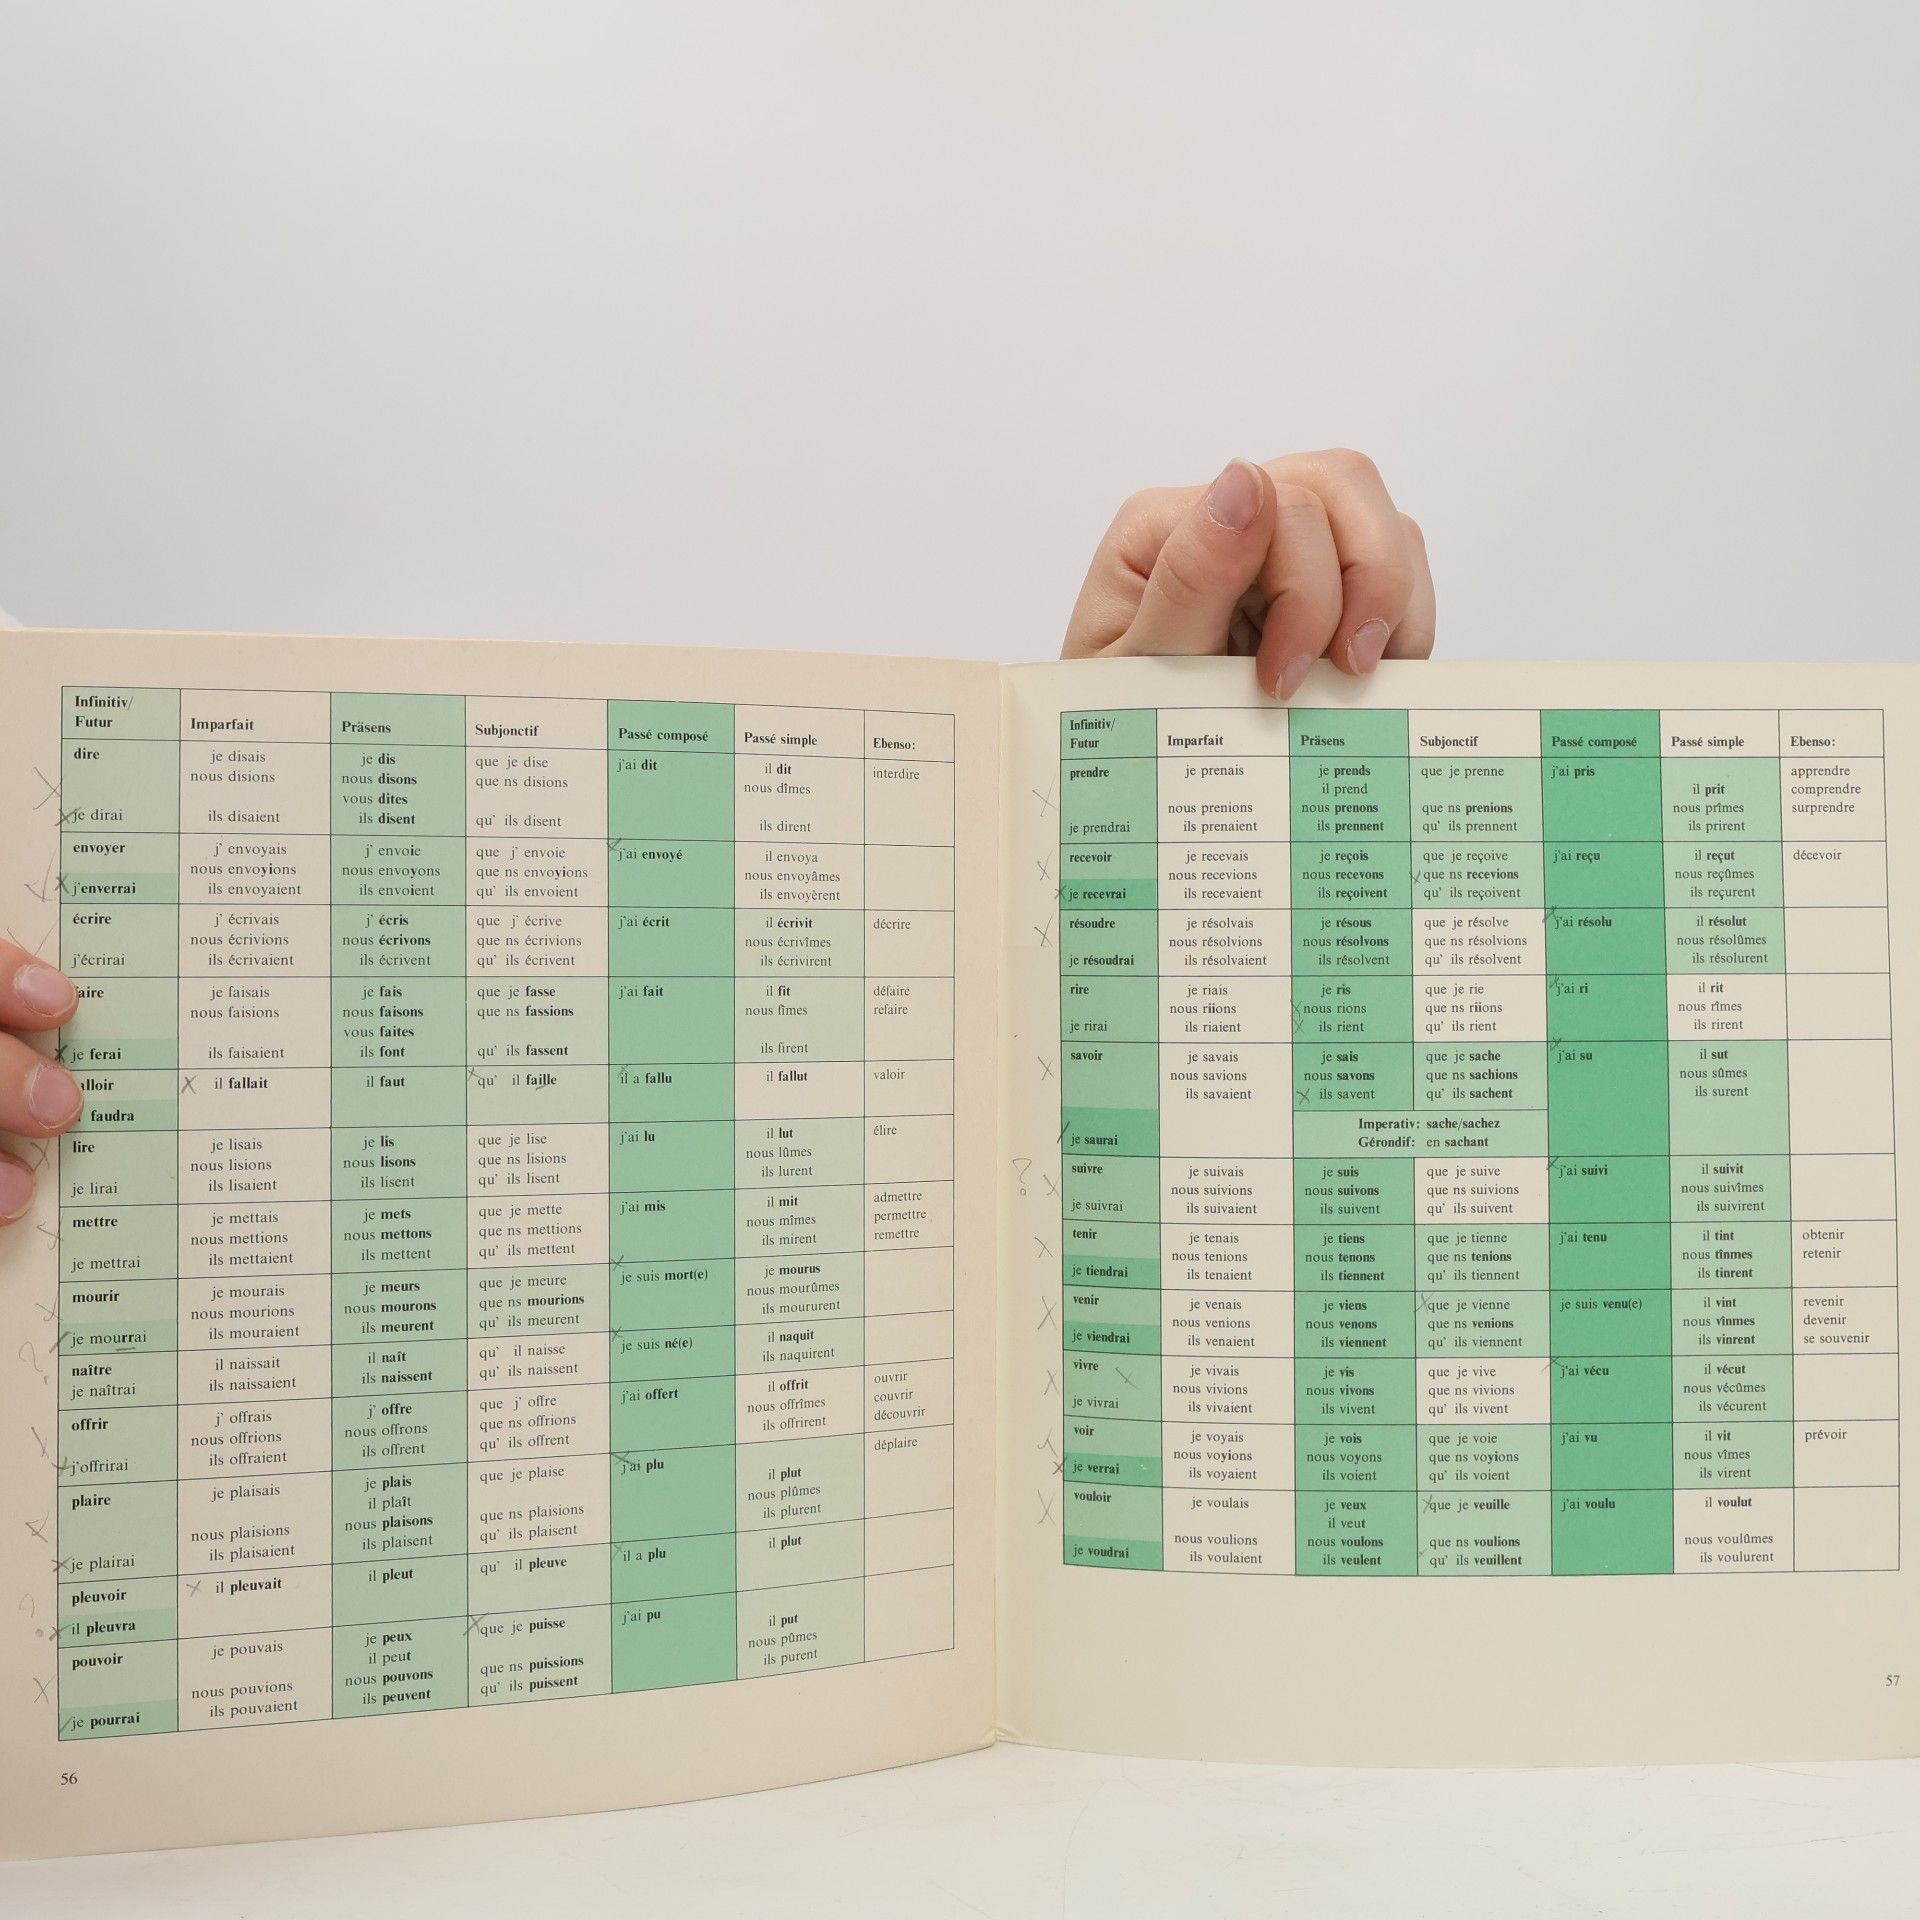 Infinitiv/
Futur Imparfait Präsens Subjonctif Passé composé Passé simple Ebenso:
dire je disais je dis que je dise j'ai dit il dit interdire
nous disions nous disons que ns disions nous dîmes
vous dites
je dirai ils disaient ils disent qu' ils disent ils dirent
envoyer j' envoyais j' envoie que j' envoie j'ai envoyé il envoya
nous envoyions nous envoyons que ns envoyions nous envoyâmes
j'enverrai ils envoyaient ils envoient qu' ils envoient ils envoyèrent
écrire j' écrivais j' écris que j' écrive j'ai écrit il écrivit décrire
nous écrivions nous écrivons que ns écrivions nous écrivîmes
j'écrirai ils écrivaient ils écrivent qu' ils écrivent ils écrivirent
aire je faisais je fais que je fasse j'ai fait il fit défaire
nous faisions nous faisons que ns fassions nous fîmes refaire
vous faites
je ferai ils faisaient ils font qu' ils fassent ils firent
alloir il fallait il faut qu' il faille il a fallu il fallut valoir
faudra
lire je lisais je lis que je lise j'ai lu il lut élire
nous lisions nous lisons que ns lisions nous lûmes
je lirai ils lisaient ils lisent qu' ils lisent ils lurent
mettre je mettais je mets que je mette j'ai mis il mit admettre
nous mettions nous mettons que ns mettions nous mîmes permettre
je mettrai ils mettaient ils mettent qu' ils mettent ils mirent remettre
mourir je mourais je meurs que je meure je suis mort(e) je mourus
nous mourions nous mourons que ns mourions nous mourûmes
je mourrai ils mouraient ils meurent qu' ils meurent ils moururent
naître il naissait il naît qu' il naisse je suis né(e) il naquit
je naîtrai ils naissaient ils naissent qu' ils naissent ils naquirent
offrir j' offrais j' offre que j' offre j'ai offert il offrit ouvrir
nous offrions nous offrons que ns offrions nous offrîmes couvrir
j'offrirai ils offraient ils offrent qu' ils offrent ils offrirent découvrir
plaire je plaisais je plais que je plaise j'ai plu il plut déplaire
il plaît
nous plaisions nous plaisons que ns plaisions nous plûmes
je plairai ils plaisaient ils plaisent qu' ils plaisent ils plurent
pleuvoir il pleuvait il pleut qu' il pleuve il a plu il plut
il pleuvra
pouvoir je pouvais je peux que je puisse j'ai pu il put
il peut
nous pouvions nous pouvons que ns puissions nous pûmes
je pourrai ils pouvaient ils peuvent qu' ils puissent ils purent
56
Infinitiv/
Futur Imparfait Präsens Subjonctif Passé composé Passé simple Ebenso:
prendre je prenais je prends que je prenne j'ai pris apprendre
il prend il prit comprendre
nous prenions nous prenons que ns prenions nous prîmes surprendre
je prendrai ils prenaient ils prennent qu' ils prennent ils prirent
recevoir je recevais je reçois que je reçoive j'ai reçu il reçut décevoir
nous recevions nous recevons que ns recevions nous reçûmes
je recevrai ils recevaient ils reçoivent qu' ils reçoivent ils reçurent
résoudre je résolvais je résous que je résolve j'ai résolu il résolut
nous résolvions nous résolvons que ns résolvions nous résolûmes
je résoudrai ils résolvaient ils résolvent qu' ils résolvent ils résolurent
rire je riais je ris que je rie j'ai ri il rit
nous riions nous rions que ns riions nous rîmes
je rirai ils riaient ils rient qu' ils rient ils rirent
savoir je savais je sais que je sache j'ai su il sut
nous savions nous savons que ns sachions nous sûmes
ils savaient ils savent qu' ils sachent ils surent
Imperativ: sache/sachez
je saurai Gérondif: en sachant
suivre je suivais je suis que je suive j'ai suivi il suivit
nous suivions nous suivons que ns suivions nous suivîmes
je suivrai ils suivaient ils suivent qu' ils suivent ils suivirent
tenir je tenais je tiens que je tienne j'ai tenu il tint obtenir
nous tenions nous tenons que ns tenions nous tînmes retenir
je tiendrai ils tenaient ils tiennent qu' ils tiennent ils tinrent
venir je venais je viens que je vienne je suis venu(e) il vint revenir
nous venions nous venons que ns venions nous vînmes devenir
je viendrai ils venaient ils viennent qu' ils viennent ils vinrent se souvenir
vivre je vivais je vis que je vive j'ai vécu il vécut
nous vivions nous vivons que ns vivions nous vécûmes
je vivrai ils vivaient ils vivent qu' ils vivent ils vécurent
voir je voyais je vois que je voie j'ai vu il vit prévoir
nous voyions nous voyons que ns voyions nous vîmes
je verrai ils voyaient ils voient qu' ils voient ils virent
vouloir je voulais je veux que je veuille j'ai voulu il voulut
il veut
nous voulions nous voulons que ns voulions nous voulûmes
je voudrai ils voulaient ils veulent qu' ils veuillent ils voulurent
57